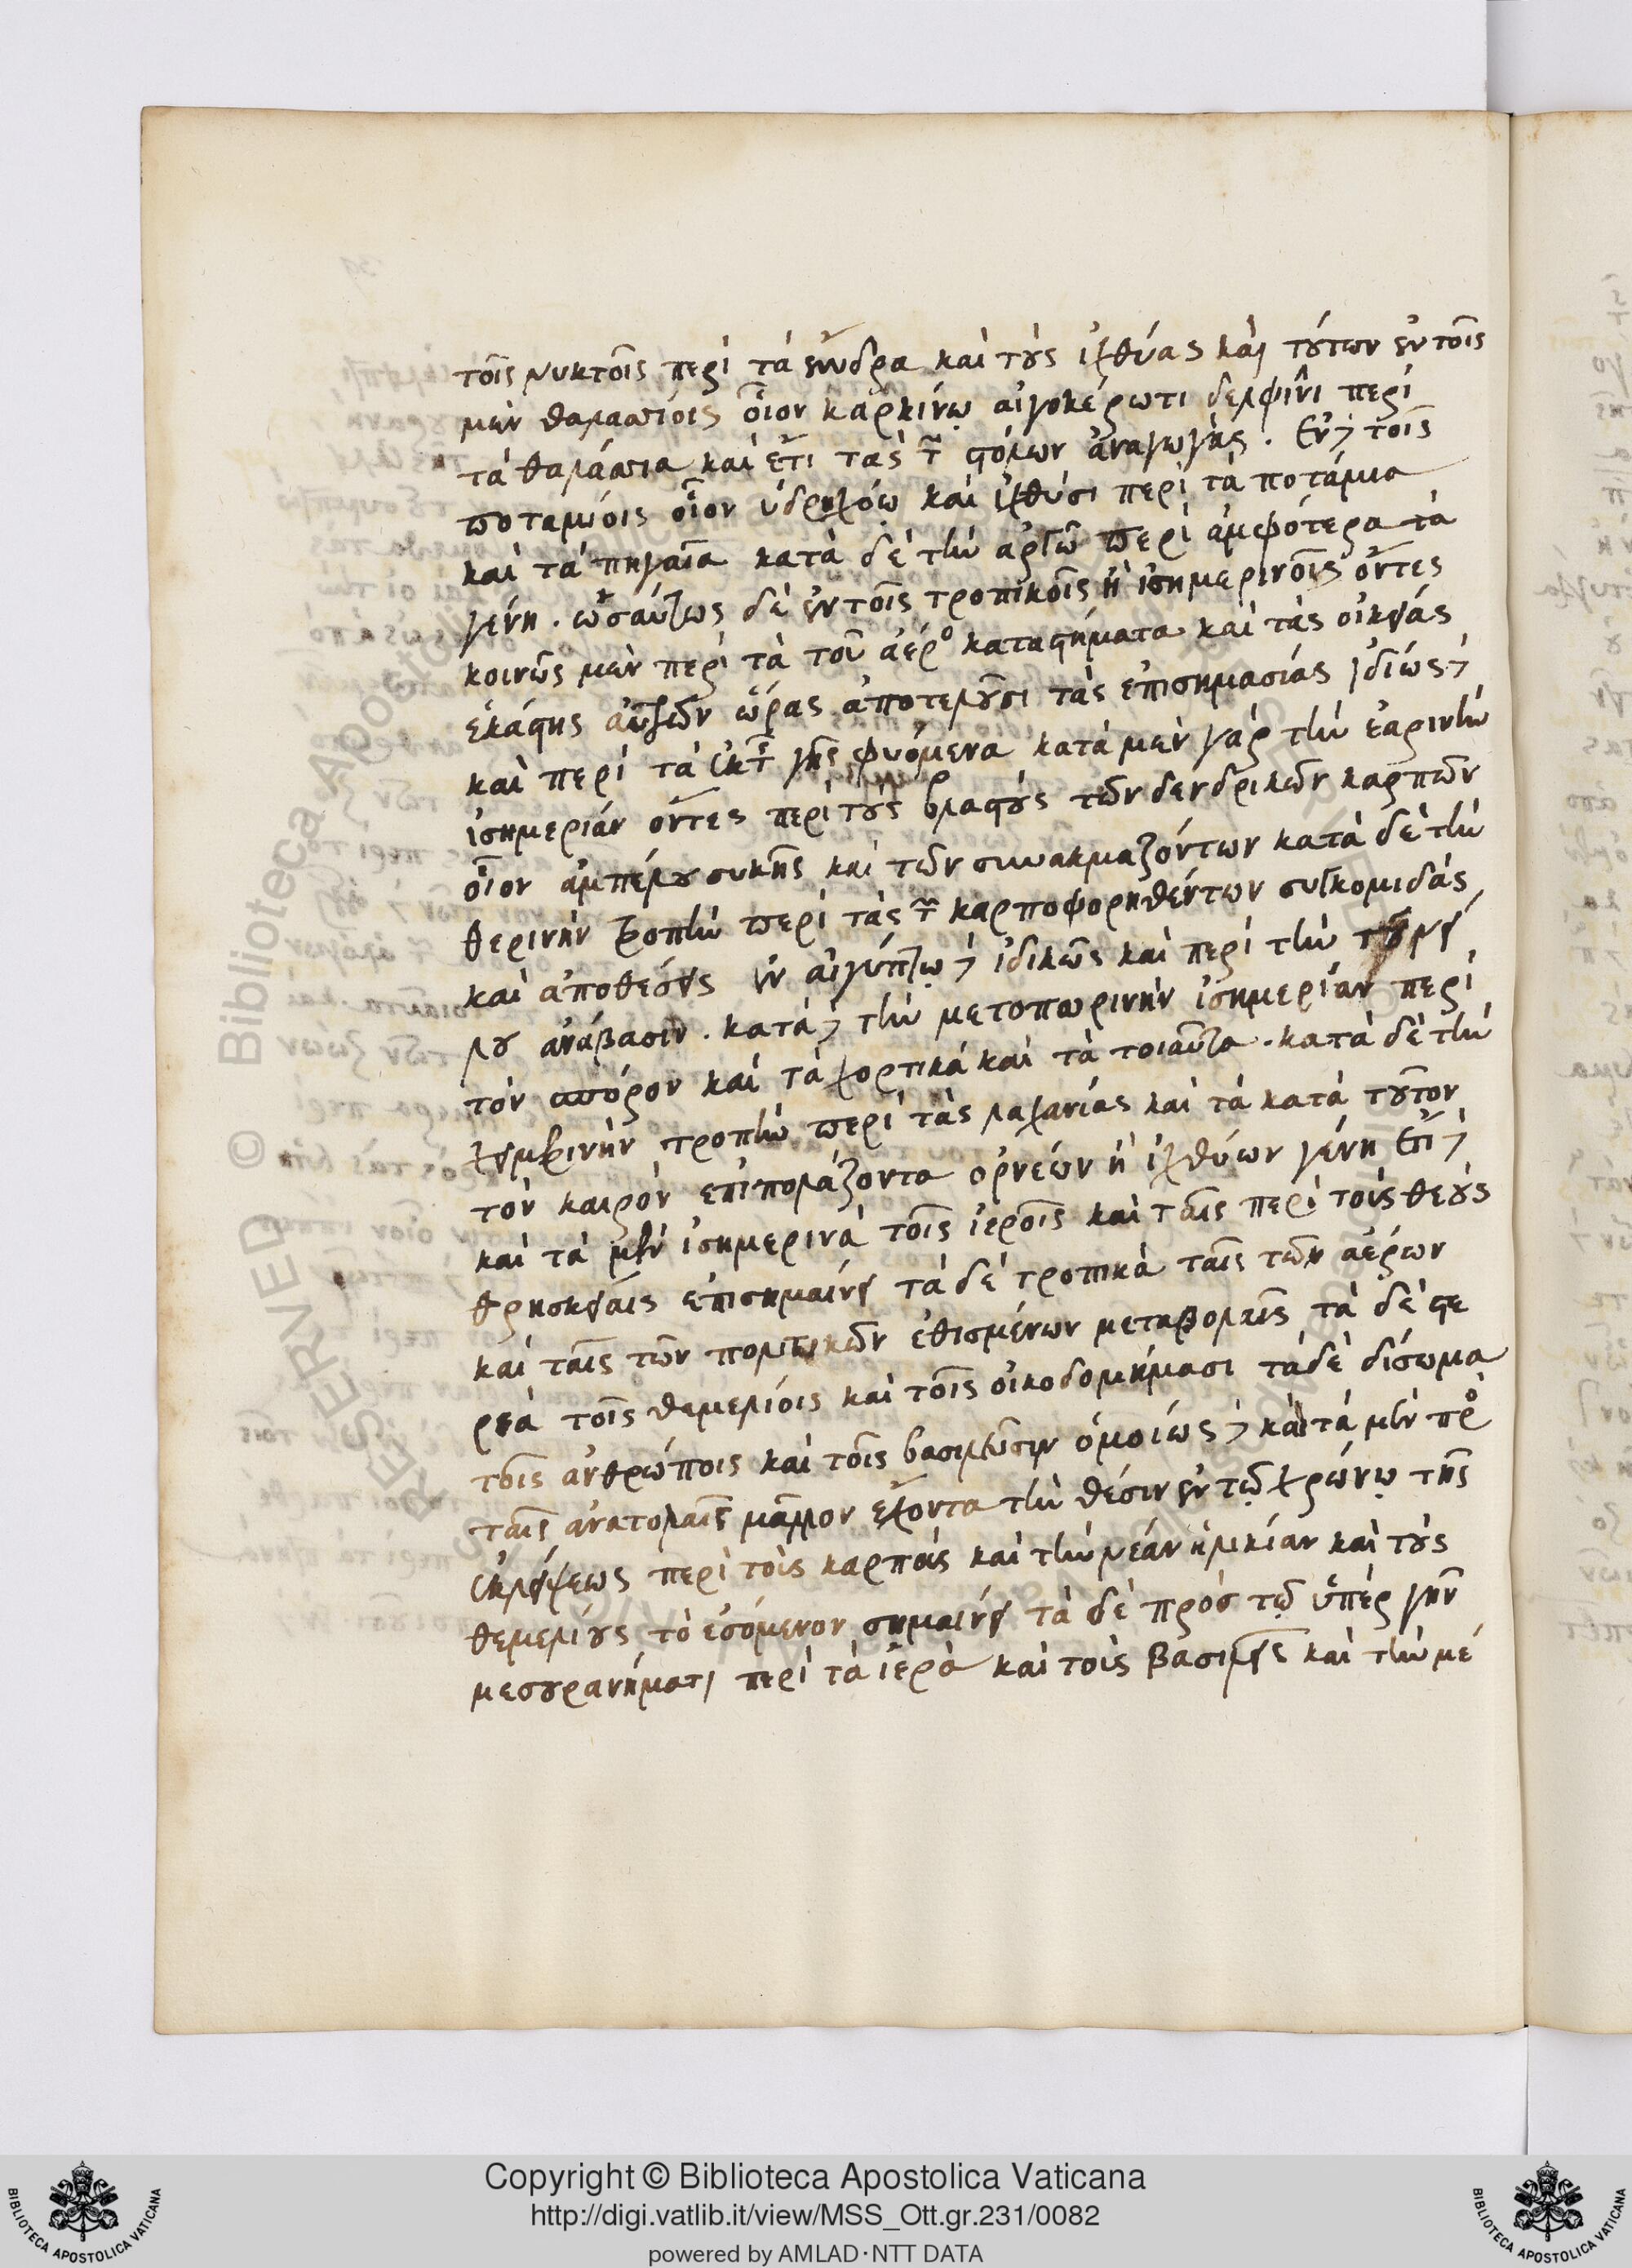 τοῖς νυκτοῖς περὶ τὰ ἔνυδρα καὶ τοὺς ἰχθύας καὶ τούτων ἐν τοῖς
μὲν θαλαττίοις οἷον καρκίνῳ αἰγοκέρωτι δελφῖνι περὶ
τὰ θαλάττια καὶ ἔτι τὰς τῶν στόλων ἀναγωγάς. Ἐν δὲ τοῖς
ποταμίοις οἷον ὑδροχόῳ καὶ ἰχθύσι περὶ τὰ ποτάμια
καὶ τὰ πηγαῖα κατὰ δὲ τὴν ἀργὼ περὶ ἀμφότερα τὰ
γένη. ὡσαύτως δὲ ἐν τοῖς τροπικοῖς ἢ ἰσημερινοῖς ὄντες
κοινῶς μὲν περὶ τὰ τοῦ ἀέρος καταστήματα καὶ τὰς οἰκείας
ἑκάστης αὐτῶν ὥρας ἀποτελοῦσι τὰς ἐπισημασίας ἰδίως δὲ
καὶ περὶ τὰ ἐκ τῆς γῆς φυόμενα κατὰ μὲν γὰρ τὴν ἐαρινὴν
ἰσημερίαν ὄντες περὶ τοὺς βλαστοὺς τῶν δενδρικῶν καρπῶν
οἷον ἀμπέλου συκῆς καὶ τῶν συνακμαζόντων κατὰ δὲ τὴν
θερινὴν τροπὴν περὶ τὰς τῶν καρποφορηθέντων συγκομιδὰς
καὶ ἀποθέσεις ἐν αἰγύπτῳ δὲ ἰδικῶς καὶ περὶ τὴν τοῦ νεί
λου ἀνάβασιν. κατὰ δὲ τὴν μετοπωρινὴν ἰσημερίαν περὶ
τὸν σπόρον καὶ τὰ χορτικὰ καὶ τὰ τοιαῦτα. κατὰ δὲ τὴν
χειμερινὴν τροπὴν περὶ τὰς λαχανίας καὶ τὰ κατὰ τοῦτον
τὸν καιρὸν ἐπιπολάζοντα ὀρνέων ἢ ἰχθύων γένη ἔτι δὲ
καὶ τὰ μὲν ἰσημερινὰ τοῖς ἱεροῖς καὶ ταῖς περὶ τοὺς θεοὺς
θρησκείαις ἐπισημαίνει τὰ δὲ τροπικὰ ταῖς τῶν ἀέρων
καὶ ταῖς τῶν πολιτικῶν ἐθισμένων μεταβολαῖς τὰ δὲ στε
ρεὰ τοῖς θεμελίοις καὶ τοῖς οἰκοδομήμασι τὰ δὲ δίσωμα
τοῖς ἀνθρώποις καὶ τοῖς βασιλεῦσιν ὁμοίως δὲ καὶ τὰ μὲν πρὸς
ταῖς ἀνατολαῖς μᾶλλον ἔχοντα τὴν θέσιν ἐν τῷ χρώνῳ τῆς
ἐκλείψεως περὶ τοὺς καρποὺς καὶ τὴν νέαν ἡλικίαν καὶ τοὺς
θεμελίους τὸ ἐσόμενον σημαίνει τὰ δὲ πρὸς τῷ ὑπὲρ γῆν
μεσουρανήματι περὶ τὰ ἱερὰ καὶ τοὺς βασιλεῖς καὶ τὴν μέ
Copyright © Biblioteca Apostolica Vaticana
http://digi.vatlib.it/view/MSS_Ott.gr.231/0082
powered by AMLAD·NTT DATA